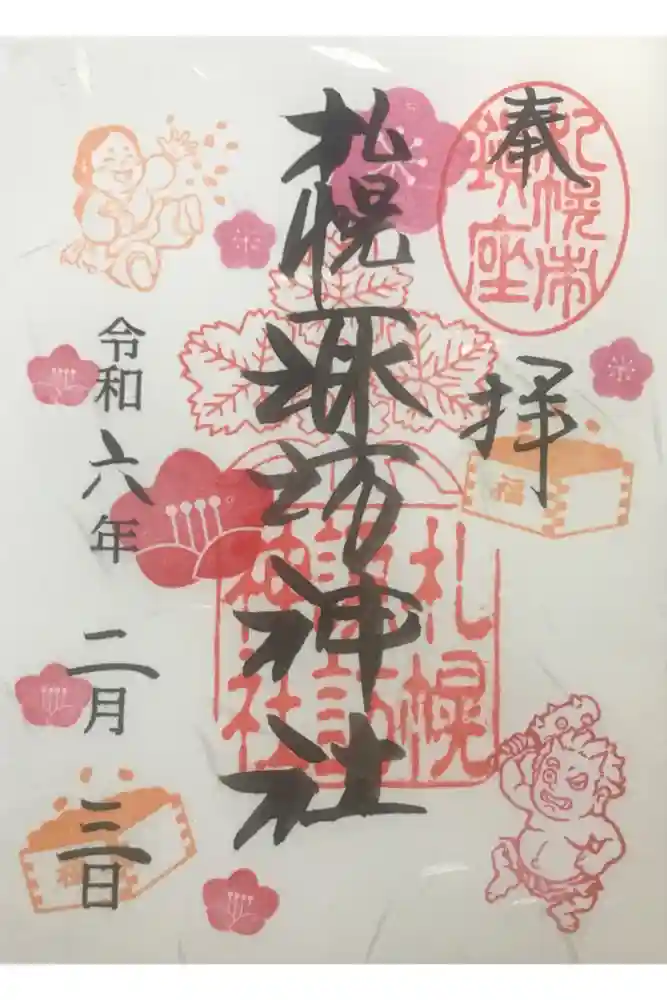 奉拝
札幌市
鎮座
福
札幌諏訪神社
札幌
諏訪
神社
令和六年二月三日
福